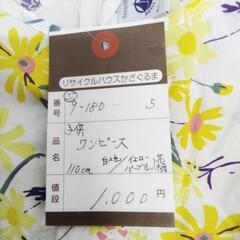 リサイクルハウスかざぐるま
番号 7-180 5
品名 子供
ワンピース
白地/イエロー
110cm パープル/花柄
値段 1,000円